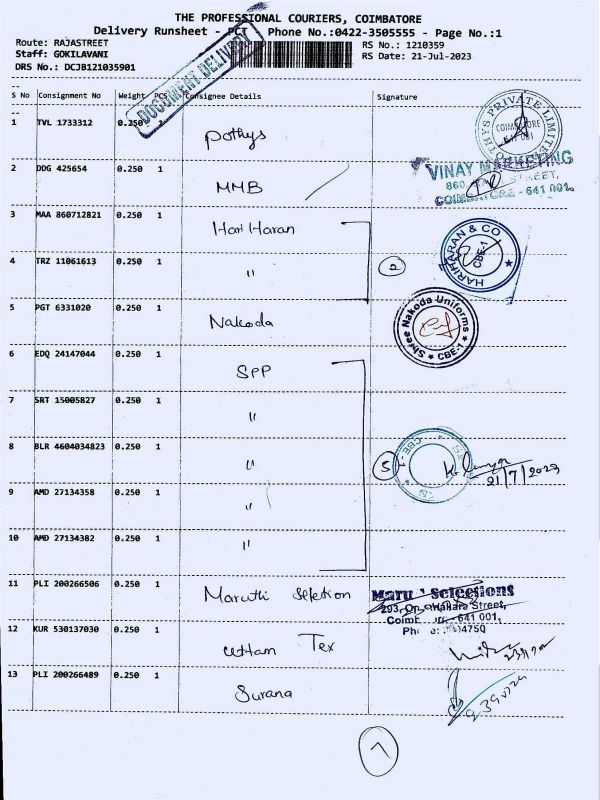 THE PROFESSIONAL COURIERS, COIMBATORE
Delivery Runsheet - PCI Phone No.:0422-3505555 - Page No.:1
Route: RAJASTREET RS No.: 1210359
Staff: GOKILAVANI RS Date: 21-Jul-2023
DRS No.: DCJB121035901
DOCUMENT DELIVERY
S No Consignment No Weight PCS Consignee Details Signature
1 TVL 1733312 0.250 1 Pothys
COIMBATORE
641 001
2 DDG 425654 0.250 1 MMB
VINAY MARKETING
860, STREET,
COIMBATORE - 641 001.
3 MAA 860712821 0.250 1 Hari Haran
4 TRZ 11061613 0.250 1 "
2
HARIHARAN & CO
CBE-1
5 PGT 6331020 0.250 1 Nakoda
Shree Nakoda Uniforms
CBE-1
6 EDQ 24147044 0.250 1 SPP
7 SRT 15005827 0.250 1 "
8 BLR 4604034823 0.250 1 "
5
21/7/2023
9 AMD 27134358 0.250 1 "
10 AMD 27134382 0.250 1 "
11 PLI 200266506 0.250 1 Maruthi Selection
Selections
293, Street,
641 001,
12 KUR 530137030 0.250 1 Uttam Tex
13 PLI 200266489 0.250 1 Surana
7